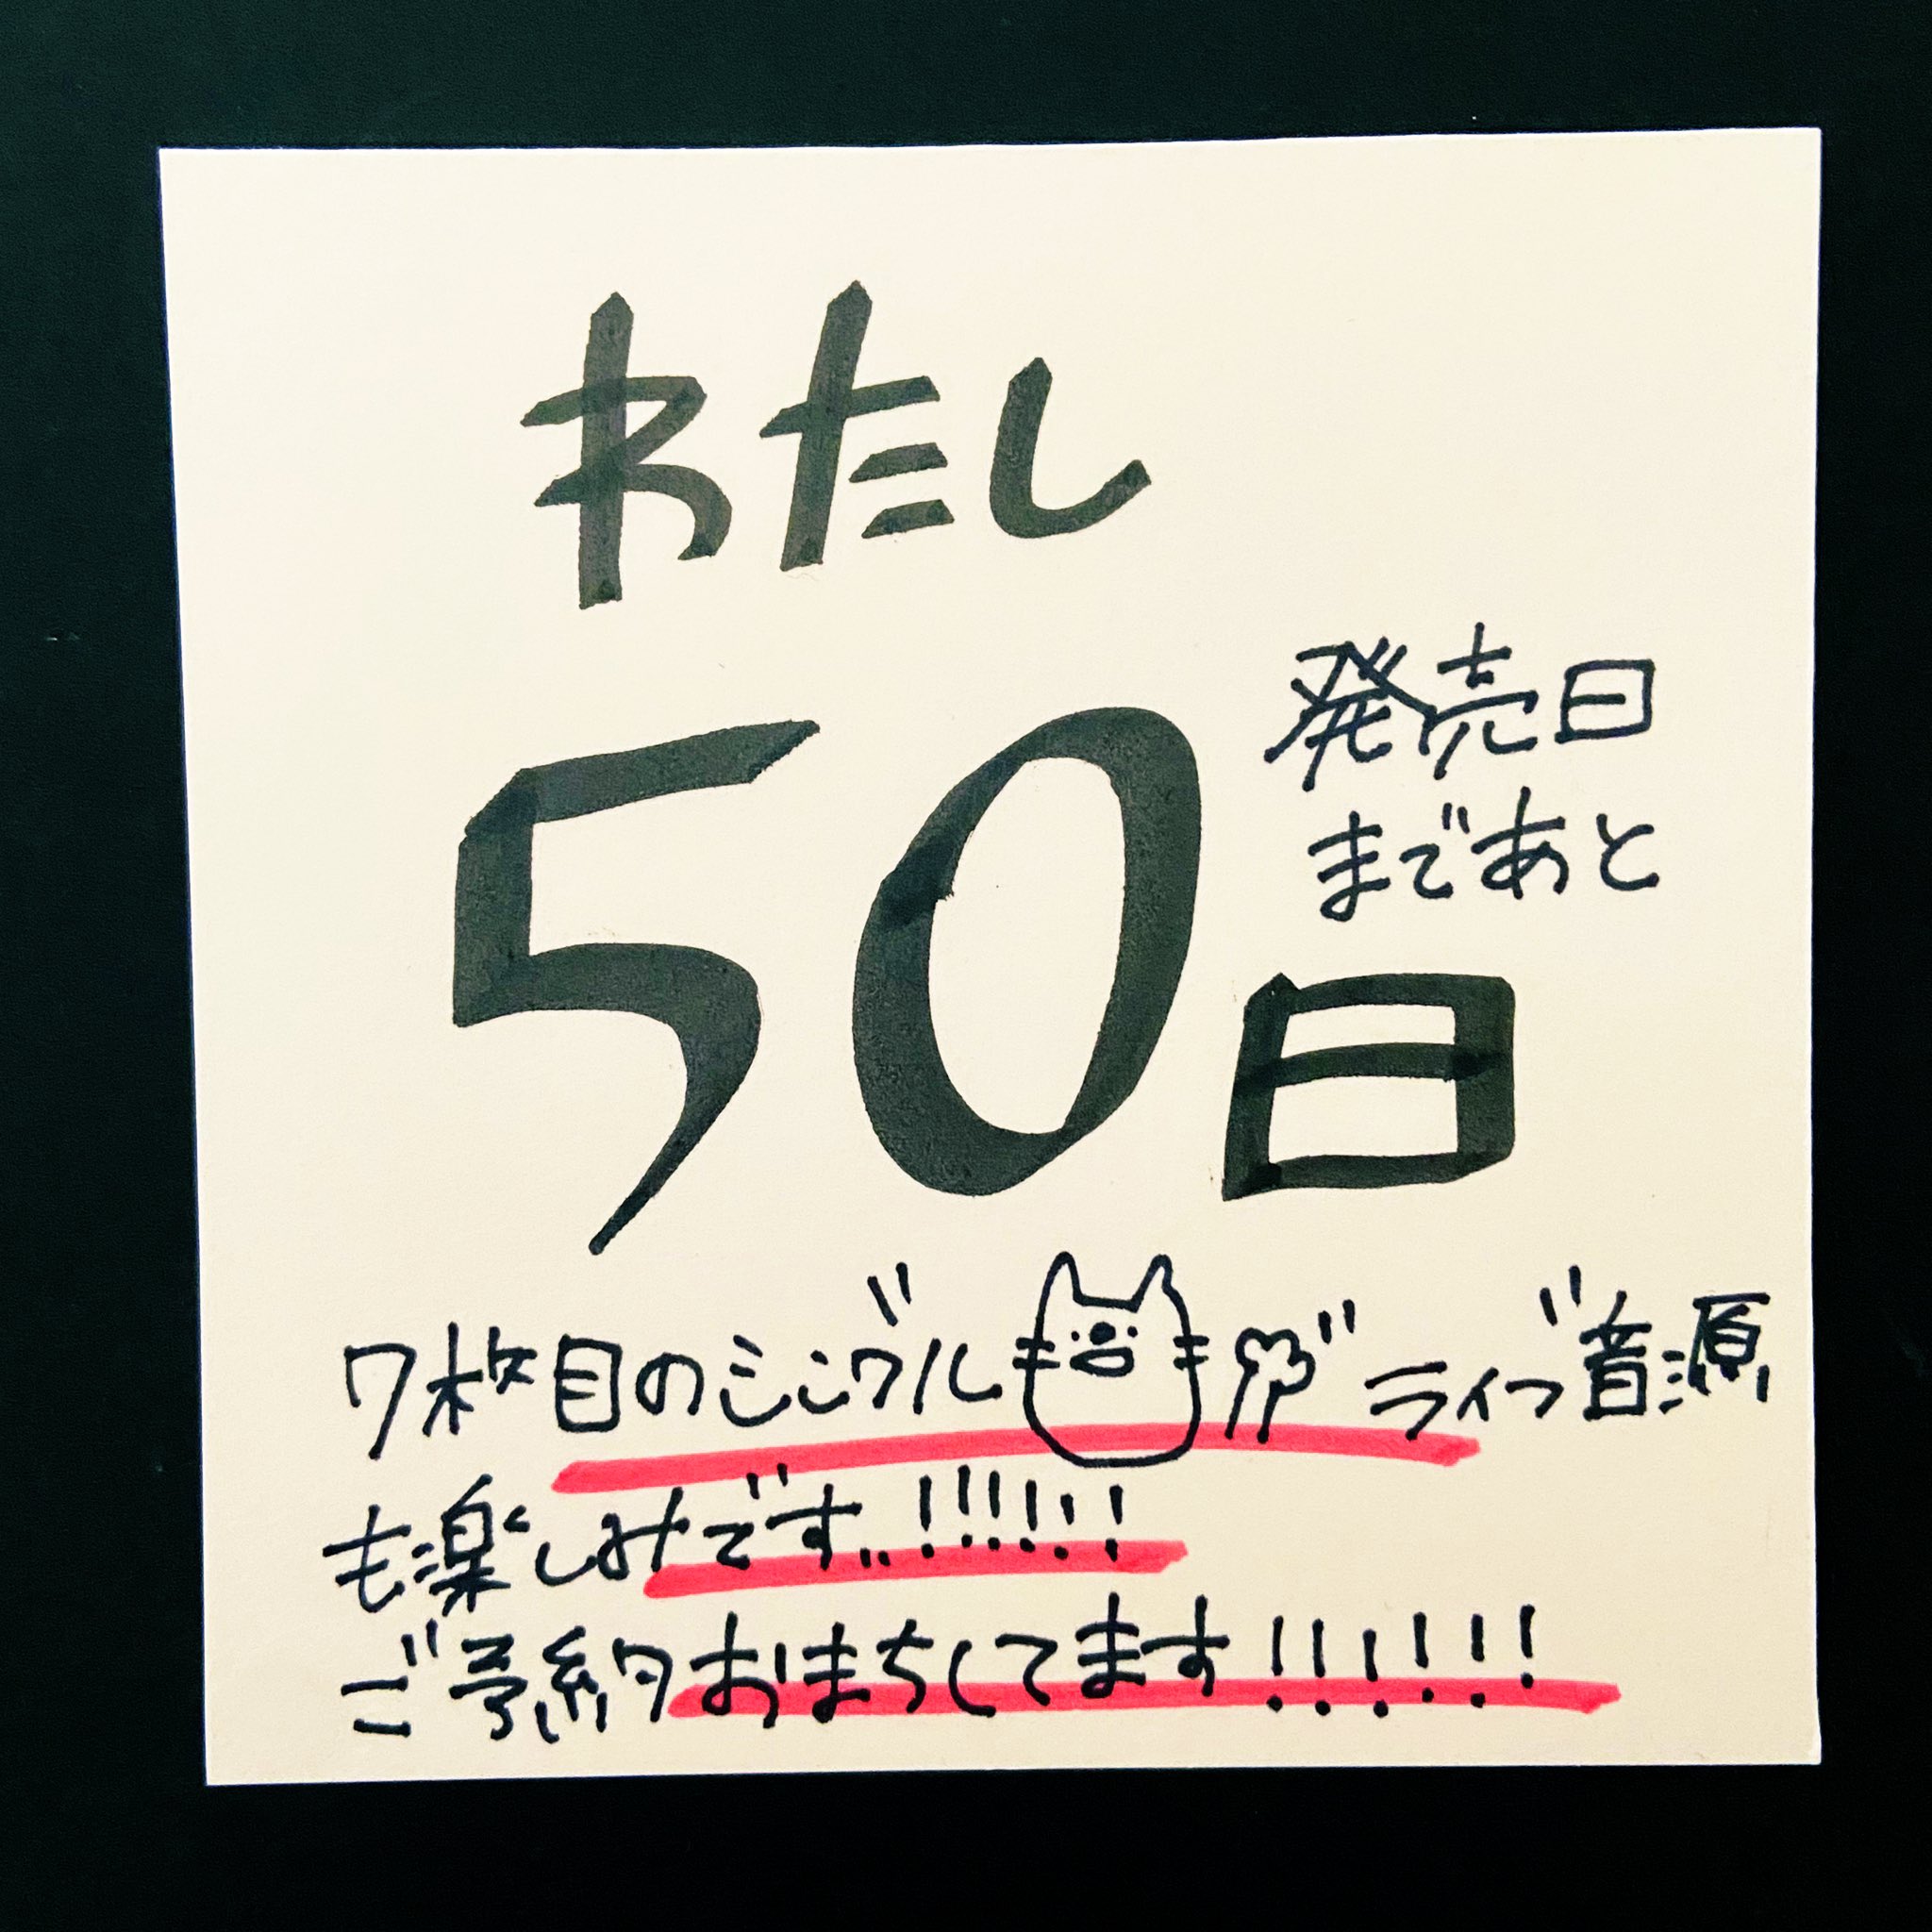 わたし
発売日
まであと
50日
7枚目のシングル ライブ音源
も楽しみです..!!!!!!
ご予約おまちしてます!!!!!!